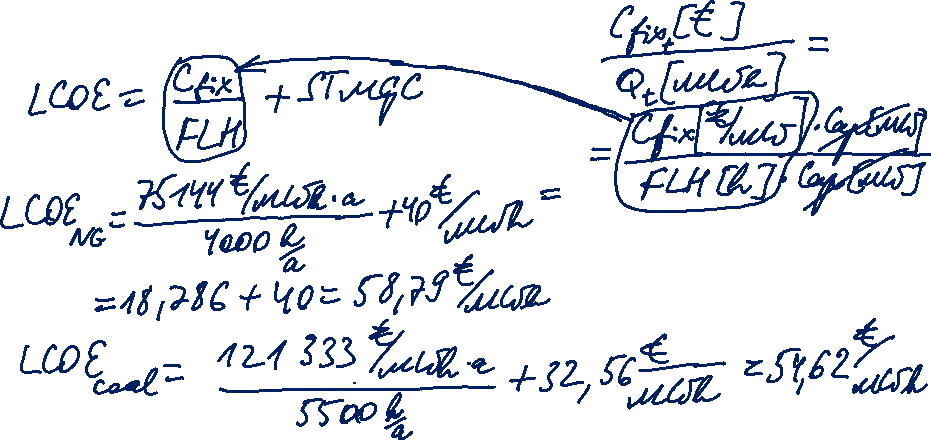 C_fix_t [€] / Q_t [MWh] =
LCOE = C_fix / FLH + STMGC
= C_fix [€/MW] · Cap [MW] / FLH [h] · Cap [MW]
LCOE_NG = 75144 €/MWh·a / 4000 h/a + 40 €/MWh =
= 18,786 + 40 = 58,79 €/MWh
LCOE_coal = 121 333 €/MWh·a / 5500 h/a + 32,56 €/MWh = 54,62 €/MWh